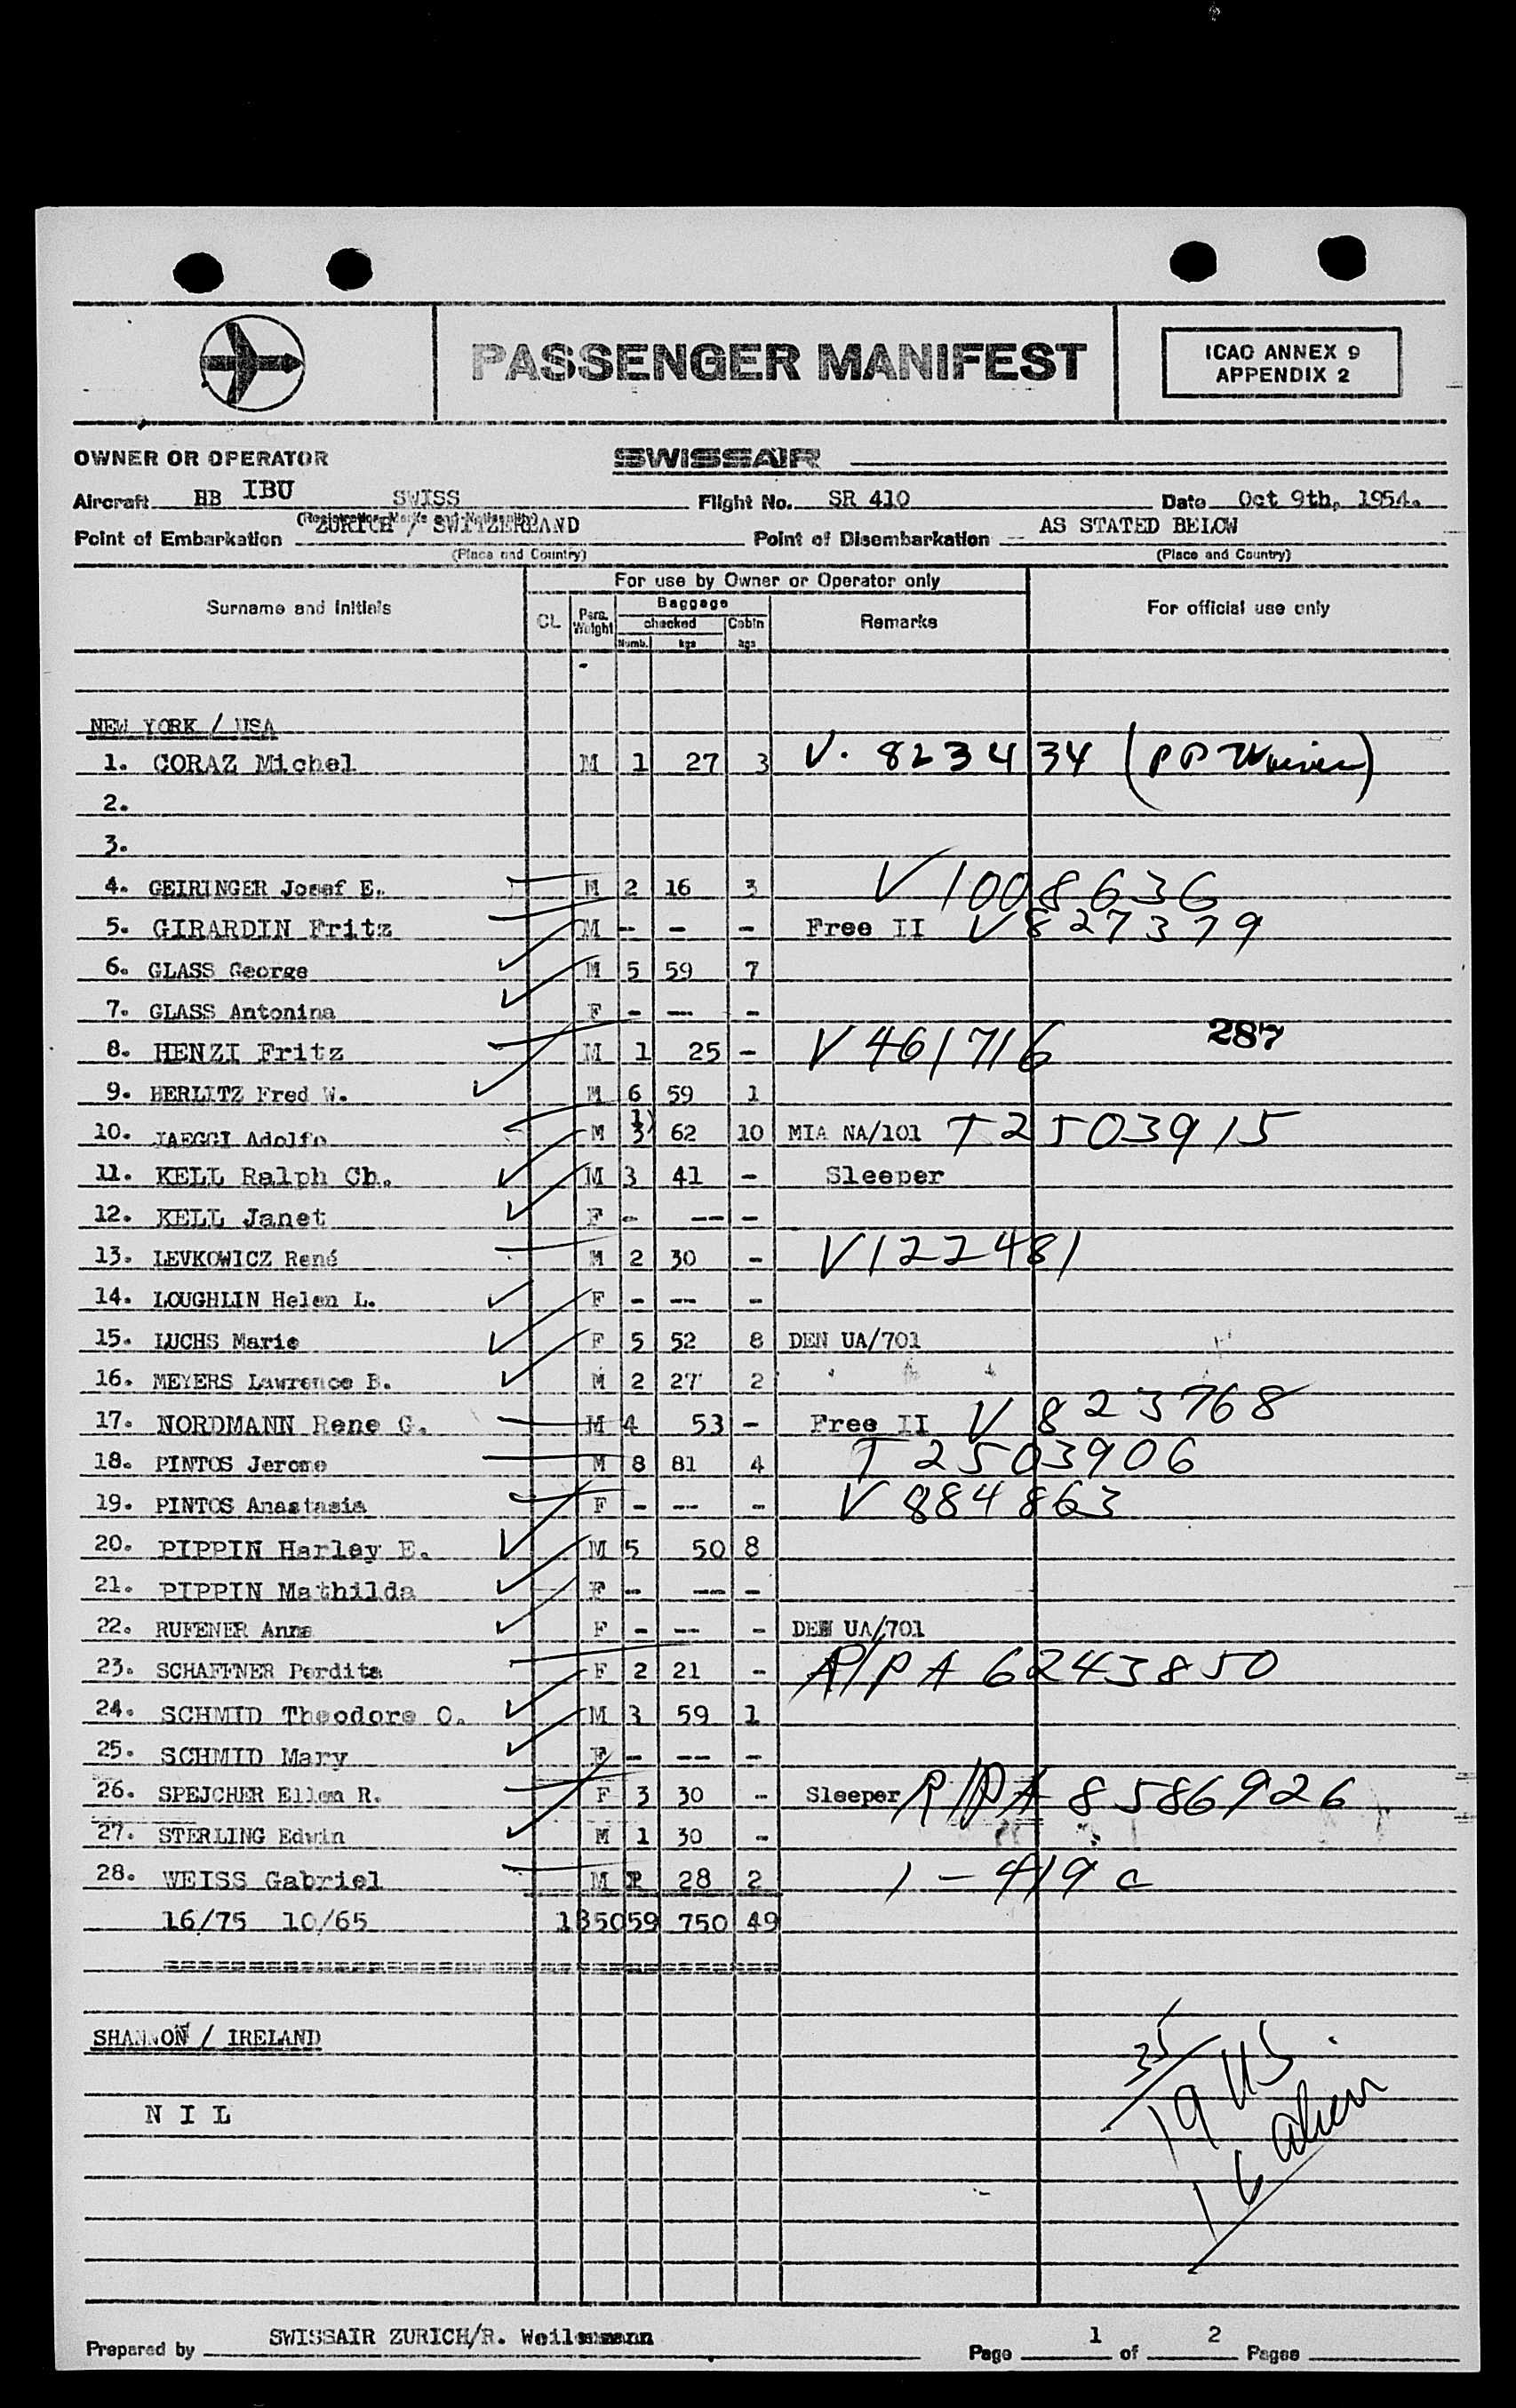 PASSENGER MANIFEST
ICAO ANNEX 9
APPENDIX 2
OWNER OR OPERATOR SWISSAIR
Aircraft HB IBU SWISS Flight No. SR 410 Date Oct 9th, 1954.
(Registration Marks and Nationality)
Point of Embarkation ZURICH / SWITZERLAND Point of Disembarkation AS STATED BELOW
(Place and Country) (Place and Country)
For use by Owner or Operator only
Surname and Initials CL Pers. Weight Baggage checked Numb. kgs Cabin kgs Remarks For official use only
NEW YORK / USA
1. CORAZ Michel M 1 27 3 V. 823434 (PP Waiver)
2.
3.
4. GEIRINGER Josef E. M 2 16 3 V 1008636
5. GIRARDIN Fritz M - - - Free II V 827379
6. GLASS George M 5 59 7
7. GLASS Antonina F - -- -
287
8. HENZI Fritz M 1 25 - V 461716
9. HERLITZ Fred W. M 6 59 1
10. JAEGGI Adolfo M 3 1) 62 10 MIA NA/101 T 2503915
11. KELL Ralph Ch. M 3 41 - Sleeper
12. KELL Janet F - -- -
13. LEVKOWICZ René M 2 30 - V 122481
14. LOUGHLIN Helen L. F - -- -
15. LUCHS Marie F 5 52 8 DEN UA/701
16. MEYERS Lawrence B. M 2 27 2
17. NORDMANN Rene G. M 4 53 - Free II V 823768
18. PINTOS Jerome M 8 81 4 T 2503906
19. PINTOS Anastasia F - -- - V 884863
20. PIPPIN Harley E. M 5 50 8
21. PIPPIN Mathilda F - -- -
22. RUFENER Anna F - -- - DEN UA/701
23. SCHAFFNER Perdita F 2 21 - P/P A 6243850
24. SCHMID Theodore O. M 3 59 1
25. SCHMID Mary F - -- -
26. SPEJCHER Ellen R. F 3 30 - Sleeper P/P A 8586926
27. STERLING Edwin M 1 30 -
28. WEISS Gabriel M 28 2 1-419 c
16/75 10/65 1850 59 750 49
SHANNON / IRELAND
N I L
35
19 US
16 alien
Prepared by SWISSAIR ZURICH/R. Weilenmann Page 1 of 2 Pages